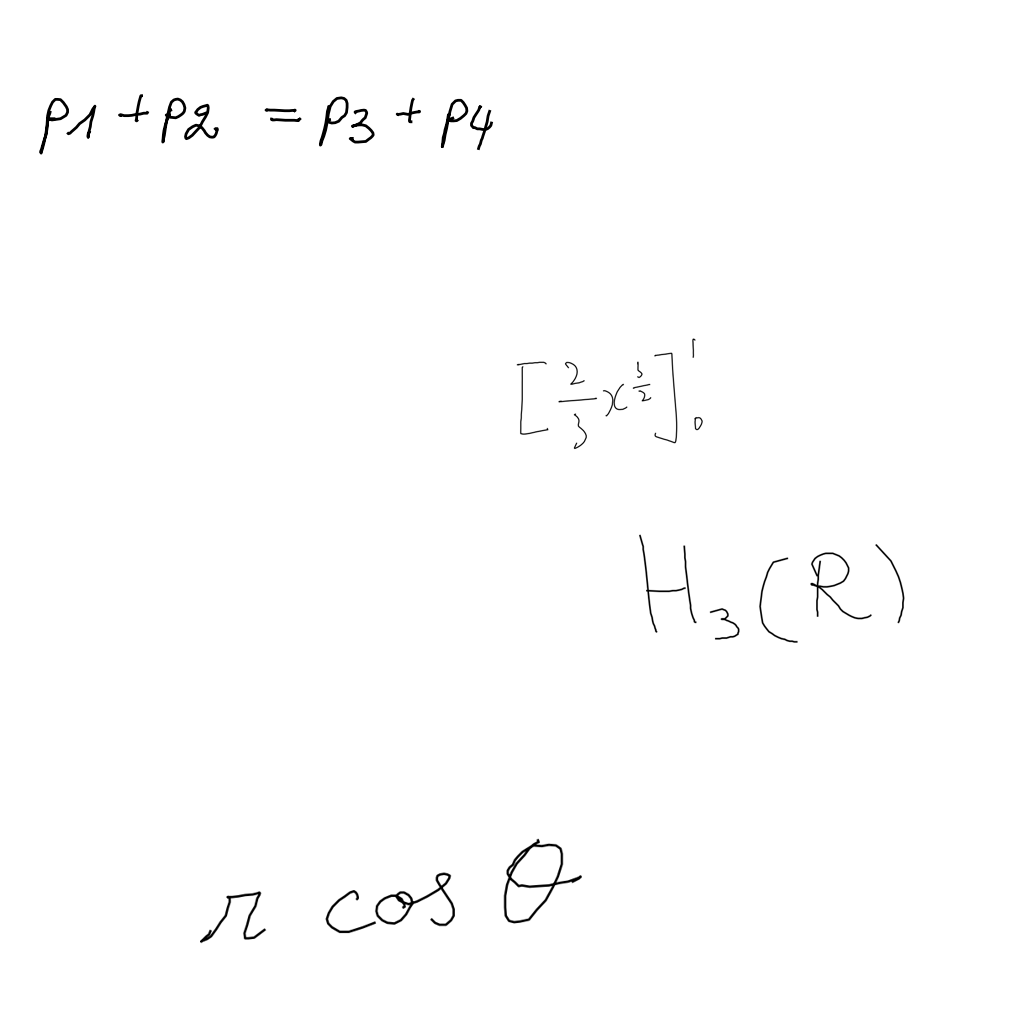 p1 + p2 = p3 + p4
[\frac{2}{3} x^{\frac{3}{2}}]_0^1
H_3(R)
r cos θ